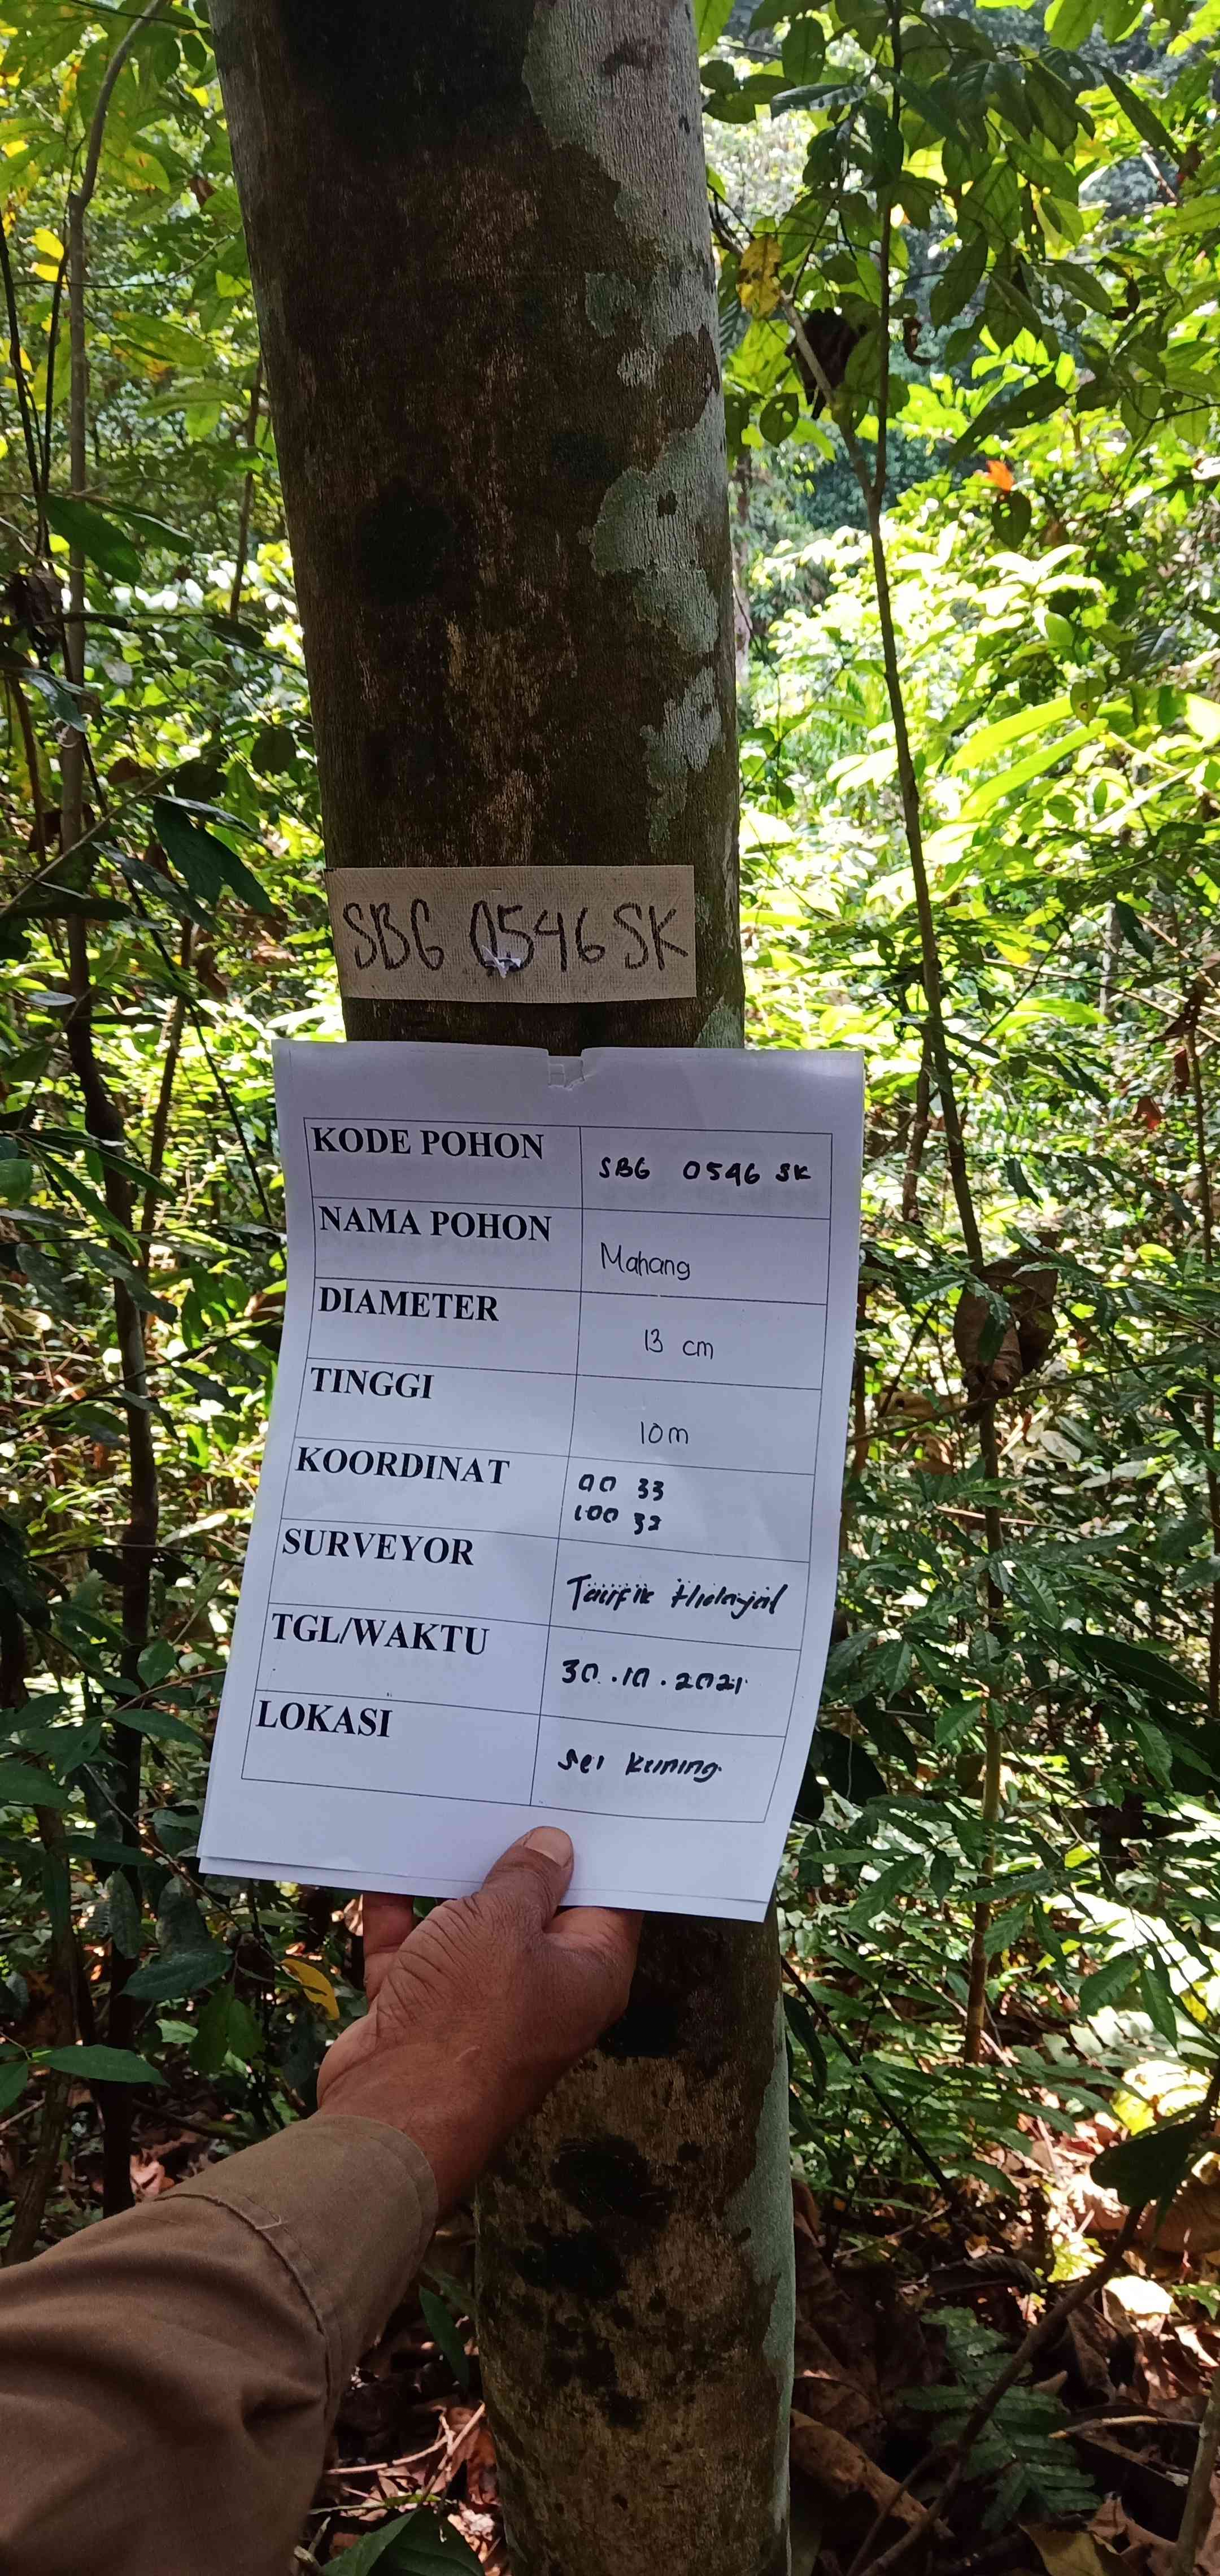 SBG 0546 SK
KODE POHON SBG 0546 SK
NAMA POHON Mahang
DIAMETER 13 cm
TINGGI 10m
KOORDINAT 00 33
100 32
SURVEYOR Taufik Hidayat
TGL/WAKTU 30.10.2021
LOKASI Sei Kuning